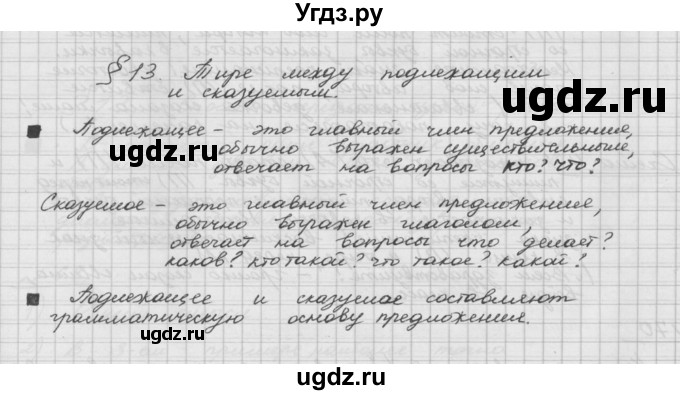 Угдз.ру
§ 13. Тире между подлежащим
и сказуемым.
ugdz.ru
ugdz.ru
Подлежащее - это главный член предложение,
обычно выражен существительным,
отвечает на вопросы кто? что?
Сказуемое - это главный член предложение,
обычно выражен глаголом,
отвечает на вопросы что делает?
каков? кто такой? что такое? какой?
ugdz.ru
ugdz.ru
Подлежащее и сказуемое составляют
грамматическую основу предложения.
ugdz.ru
ugdz.ru
ugdz.ru